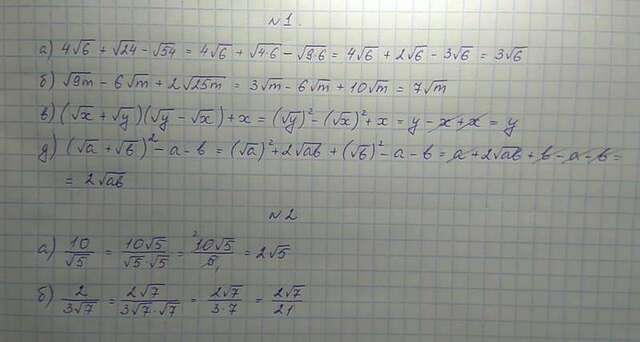 №1.
а) 4√6 + √24 - √54 = 4√6 + √4·6 - √9·6 = 4√6 + 2√6 - 3√6 = 3√6
б) √9m - 6√m + 2√25m = 3√m - 6√m + 10√m = 7√m
в) (√x + √y)(√y - √x) + x = (√y)² - (√x)² + x = y - x + x = y
д) (√a + √b)² - a - b = (√a)² + 2√ab + (√b)² - a - b = a + 2√ab + b - a - b =
= 2√ab
№2
а) 10/√5 = 10√5/√5·√5 = ²10√5/5₁ = 2√5
б) 2/3√7 = 2√7/3√7·√7 = 2√7/3·7 = 2√7/21